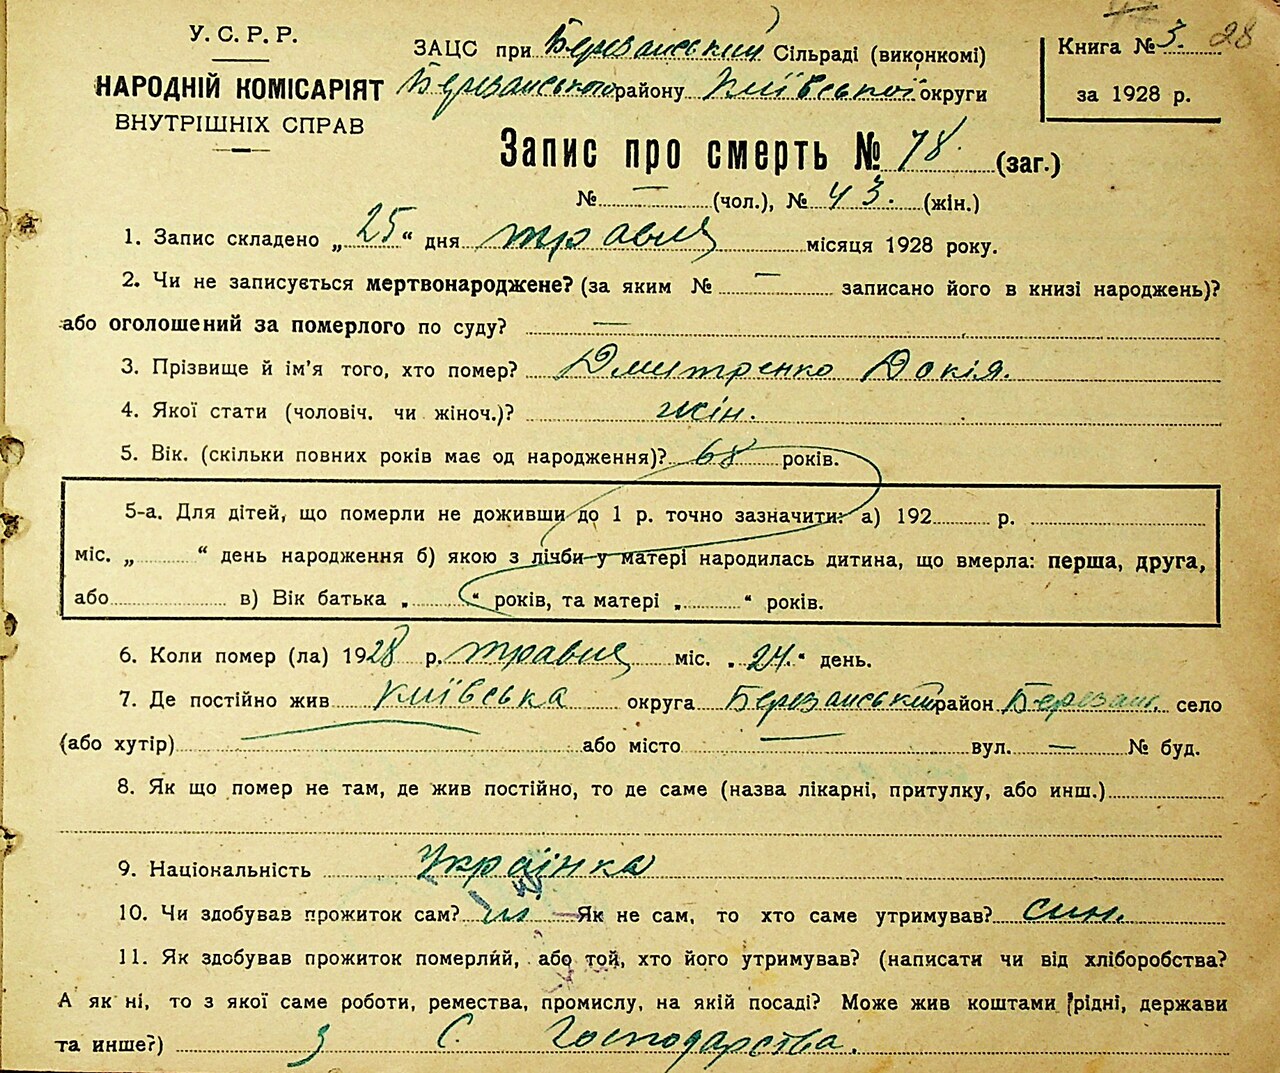 У. С. Р. Р.
НАРОДНІЙ КОМІСАРІЯТ
ВНУТРІШНІХ СПРАВ
ЗАЦС при Березанський Сільраді (виконкомі)
Березанського району Київської округи
Книга № 3. 28
за 1928 р.
Запис про смерть № 78. (заг.)
№ — (чол.), № 43. (жін.)
1. Запис складено „25“ дня травня місяця 1928 року.
2. Чи не записується мертвонароджене? (за яким № — записано його в книзі народжень)?
або оголошений за померлого по суду? —
3. Прізвище й ім'я того, хто помер? Дмитренко Докія.
4. Якої стати (чоловіч. чи жіноч.)? жін.
5. Вік. (скільки повних років має од народження)? 68 років.
5-а. Для дітей, що померли не доживши до 1 р. точно зазначити: а) 192 р.
міс. „ “ день народження б) якою з лічби у матері народилась дитина, що вмерла: перша, друга,
або в) Вік батька „ “ років, та матері „ “ років.
6. Коли помер (ла) 1928 р. травня міс. „24.“ день.
7. Де постійно жив Київська округа Березанський район Березань село
(або хутір) або місто — вул. — № буд.
8. Як що помер не там, де жив постійно, то де саме (назва лікарні, притулку, або инш.)
9. Національність Українка
10. Чи здобував прожиток сам? Як не сам, то хто саме утримував? син.
11. Як здобував прожиток померлий, або той, хто його утримував? (написати чи від хліборобства?
А як ні, то з якої саме роботи, ремества, промислу, на якій посаді? Може жив коштами рідні, держави
та инше?) з С. Господарства.